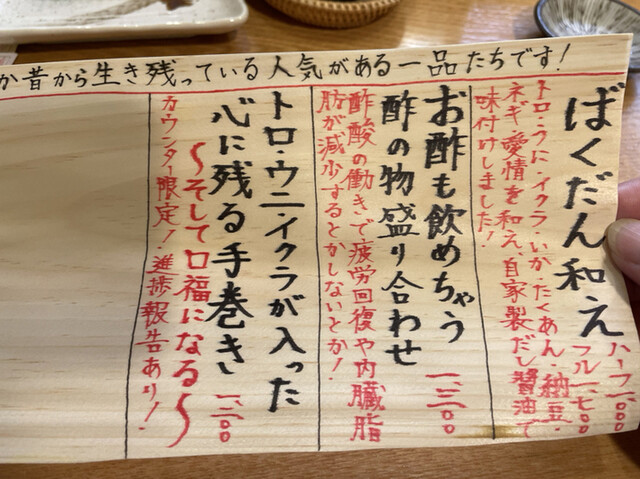 か昔から生き残っている人気がある一品たちです!
ばくだん和え
ハーフ一、一〇〇
フル一、七〇〇
トロ・うに・イクラ・いか・たくあん・納豆・
ネギ・愛情を和え、自家製だし醤油で
味付けしました!
お酢も飲めちゃう
酢の物盛り合わせ
一、三〇〇
酢酸の働きで疲労回復や内臓脂
肪が減少するとかしないとか!
トロ・ウニ・イクラが入った
心に残る手巻き
一、二〇〇
〜そして口福になる〜
カウンター限定!進捗報告あり!